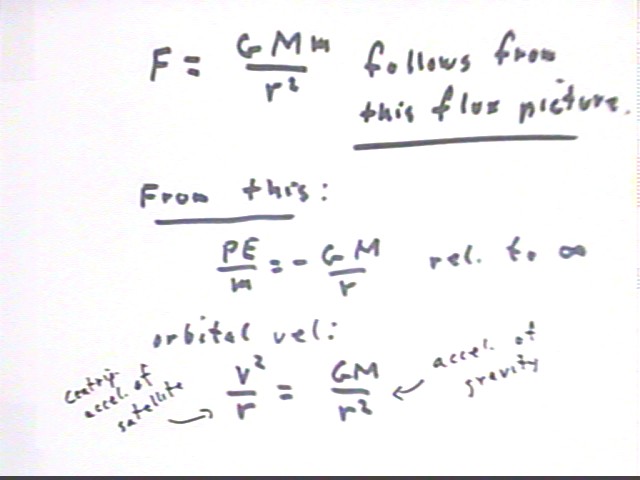 F = GMm/r² follows from
this flux picture.
From this:
PE/m = - GM/r rel. to ∞
orbital vel:
centrip. accel. of satellite → v²/r = GM/r² ← accel. of gravity